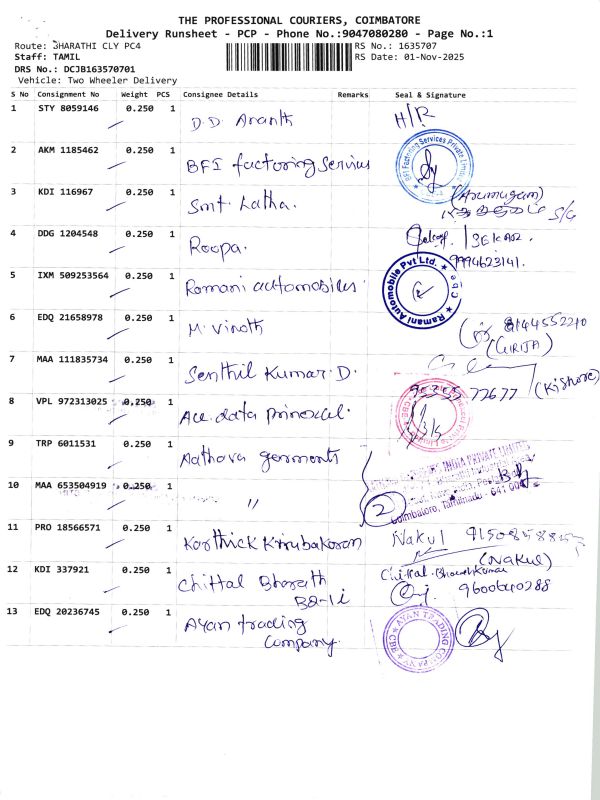 THE PROFESSIONAL COURIERS, COIMBATORE
Delivery Runsheet - PCP - Phone No.:9047080280 - Page No.:1
Route: BHARATHI CLY PC4
RS No.: 1635707
Staff: TAMIL
RS Date: 01-Nov-2025
DRS No.: DCJB163570701
Vehicle: Two Wheeler Delivery
S No Consignment No Weight PCS Consignee Details Remarks Seal & Signature
1 STY 8059146 0.250 1 D.D. Ananth H/R
2 AKM 1185462 0.250 1 BFI factoring Services
BFI Factoring Services Private Limited
3 KDI 116967 0.250 1 Smt. Latha. (Arumugam)
S/G
4 DDG 1204548 0.250 1 Roopa.
9994623141.
5 IXM 509253564 0.250 1 Ramani automobiles
Ramani Automobile Pvt Ltd. CBE
6 EDQ 21658978 0.250 1 M. Vinoth 8144552210
(GIRIJA)
7 MAA 111835734 0.250 1 Senthil Kumar. D.
77677 (Kishore)
8 VPL 972313025 0.250 1 Ace data
9 TRP 6011531 0.250 1 Aathava garments
INDIA PRIVATE LIMITED
10 MAA 653504919 0.250 1 "
2
Coimbatore, Tamilnadu - 641
11 PRO 18566571 0.250 1 Karthick Kirubakaran Nakul
(Nakul)
12 KDI 337921 0.250 1 Chittal Bharath Chittal. Bharath Kumar
B2-1i 9600640288
13 EDQ 20236745 0.250 1 Ayan trading
Company.
AYAN TRADING COMPANY CBE